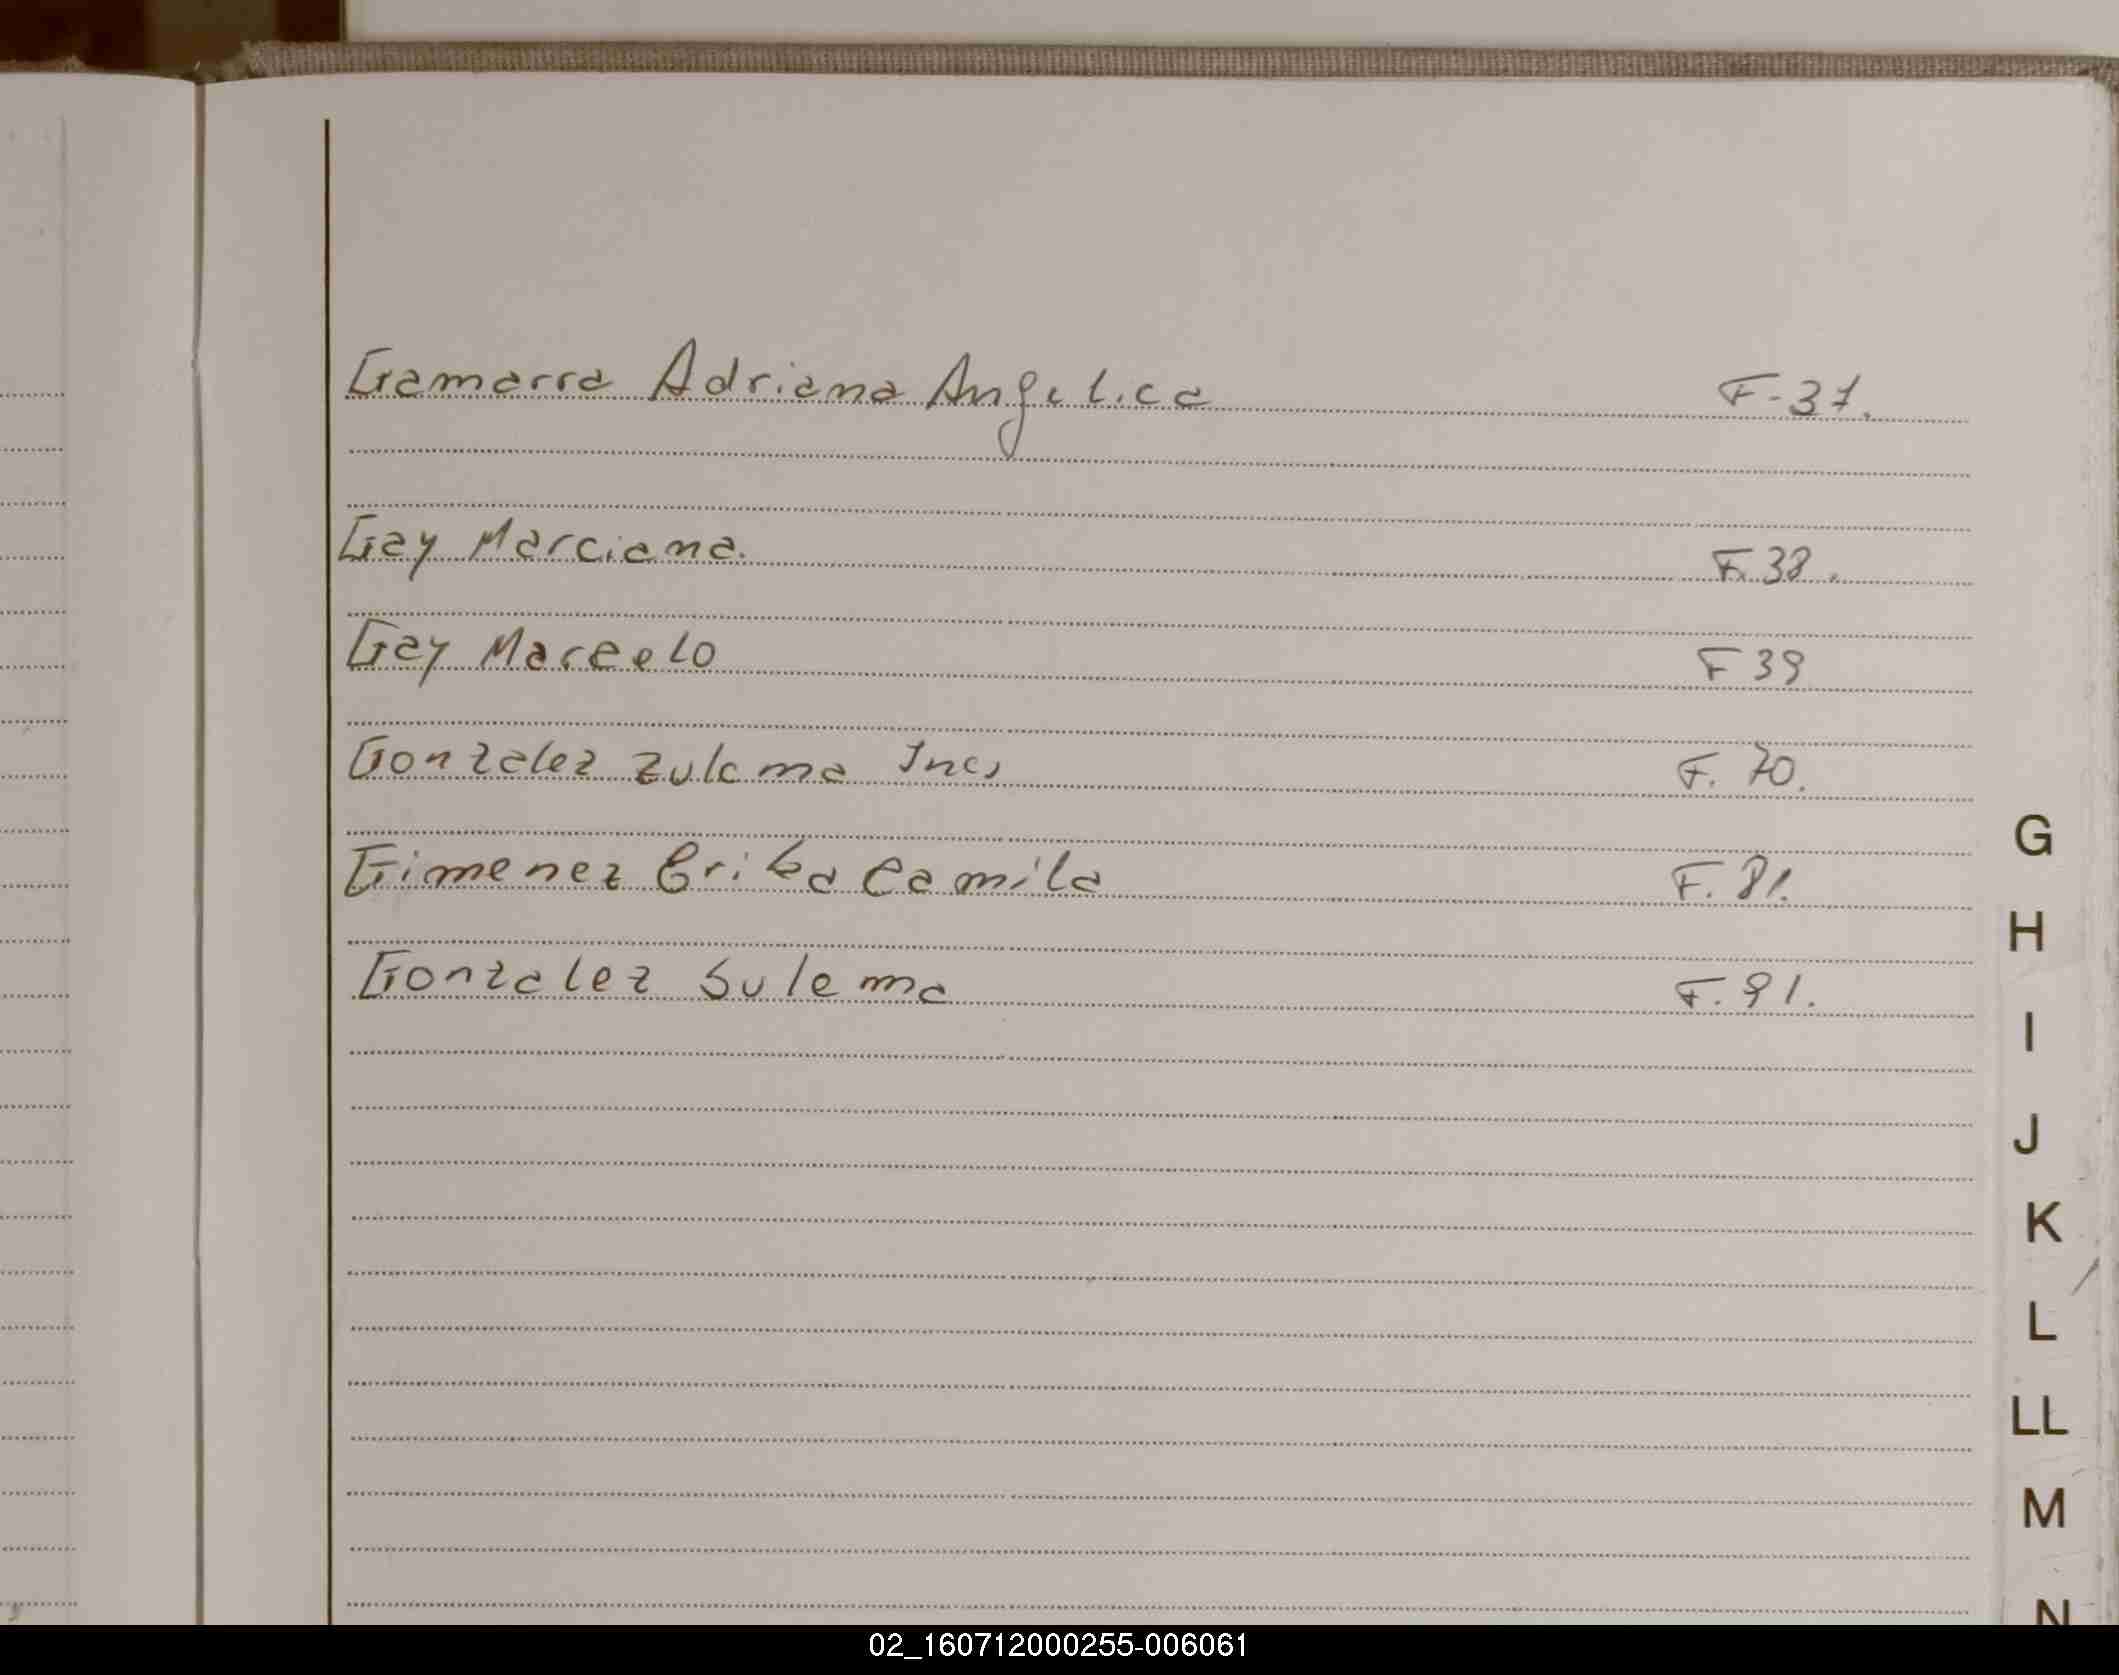 Gamarra Adriana Angelica F-37.
Gay Marciana. F.38.
Gay Marcelo F 39
Gonzalez Zulema Ines F. 70.
Gimenez Erika Camila F. 81.
Gonzalez Sulema F. 91.
G
H
I
J
K
L
LL
M
N
02_160712000255-006061